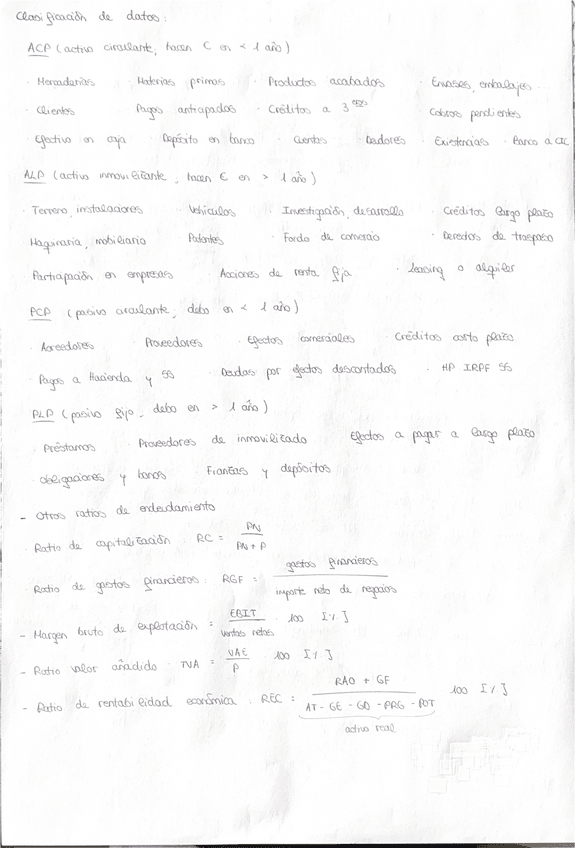 Clasificación de datos:
ACP (activo circulante, hacen € en < 1 año)
· Mercaderías · Materias primas · Productos acabados · Envases, embalajes
· Clientes · Pagos anticipados · Créditos a 3eros · Cobros pendientes
· Efectivo en caja · Depósito en banco · Cuentas · Deudores · Existencias · Banco a C/C
ALP (activo inmovilizante, hacen € en > 1 año)
· Terreno, instalaciones · Vehículos · Investigación, desarrollo · Créditos largo plazo
Maquinaria, mobiliario Patentes · Fondo de comercio · Derechos de traspaso
· Participación en empresas · Acciones de renta fija · Leasing o alquiler
PCP (pasivo circulante, debo en < 1 año)
· Acreedores · Proveedores · Efectos comerciales · Créditos corto plazo
· Pagos a Hacienda y SS · Deudas por efectos descontados · HP IRPF SS
PLP (pasivo fijo, debo en > 1 año)
· Préstamos · Proveedores de inmovilizado Efectos a pagar a largo plazo
· Obligaciones y bonos Fianzas y depósitos
- Otros ratios de endeudamiento
· Ratio de capitalización · RC = PN / PN + P
· Ratio de gastos financieros · RGF = gastos financieros / importe neto de negocios
- Margen bruto de explotación = EBIT / ventas netas · 100 [%]
- Ratio valor añadido · TVA = VAE / P · 100 [%]
- Ratio de rentabilidad económica · REC = RAO + GF / AT - GE - GD - PRG - POT · 100 [%]
activo real